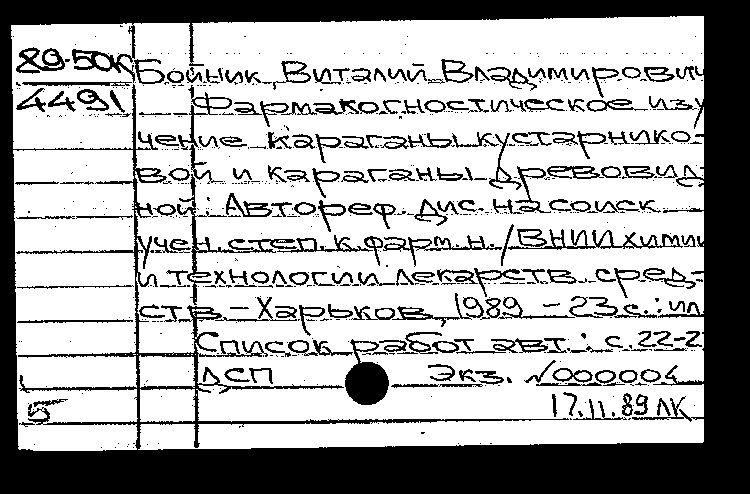 89-50К Бойник, Виталий Владимирович
4491 Фармакогностическое изу
чение караганы кустарнико-
вой и караганы древовид-
ной: Автореф. дис. на соиск.
учен. степ. к. фарм. н. / ВНИИ химии
и технологии лекарств. сред-
ств. - Харьков, 1989 - 23 с.: ил
Список работ авт.: с. 22-2
ДСП Экз. №000004
5 17.11.89 ЛК